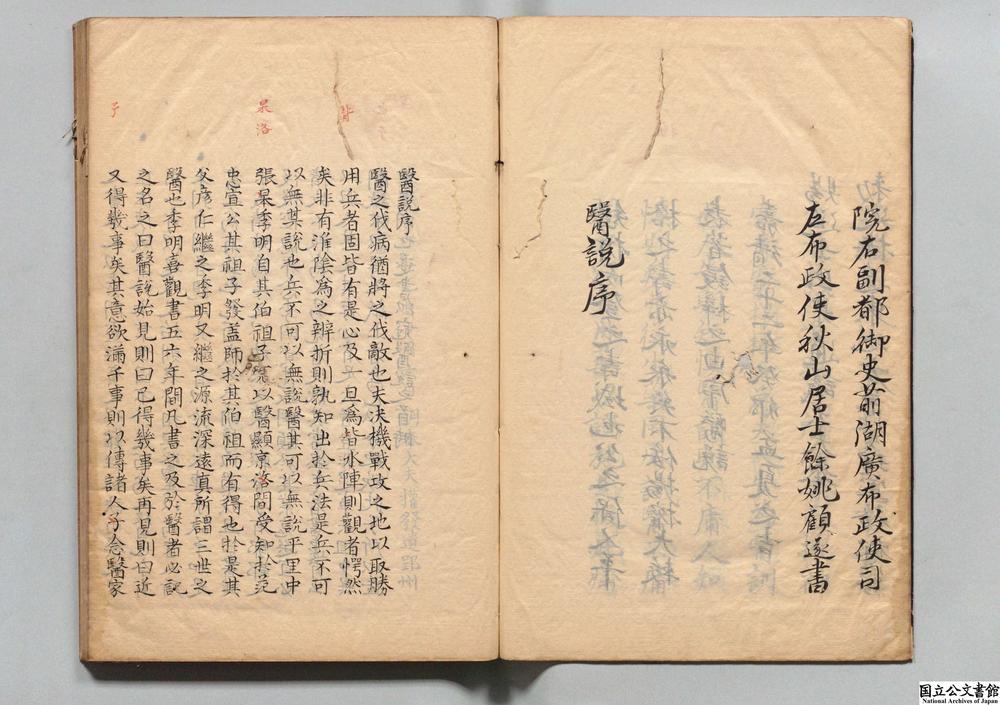 院右副都御史前湖廣布政使司
左布政使秋山居士餘姚顧遂書
醫說序
醫說序
醫之伐病猶將之伐敵也夫決機戰攻之地以取勝
用兵者固皆有是心及一旦為背水陣則觀者愕然
矣非有淮陰為之辨折則孰知出於兵法是兵不可
以無其說也兵不可以無說醫其可以無說乎里中
張杲季明自其伯祖子充以醫顯京洛間受知於范
忠宣公其祖子發盖師於其伯祖而有得也於是其
父彥仁繼之季明又繼之源流深遠真所謂三世之
醫也季明喜觀書五六年間凡書之及於醫者必記
之名之曰醫說始見則曰已得幾事矣再見則曰近
又得幾事矣其意欲滿千事則以傳諸人予念醫家
背
杲
洛
予
国立公文書館
National Archives of Japan